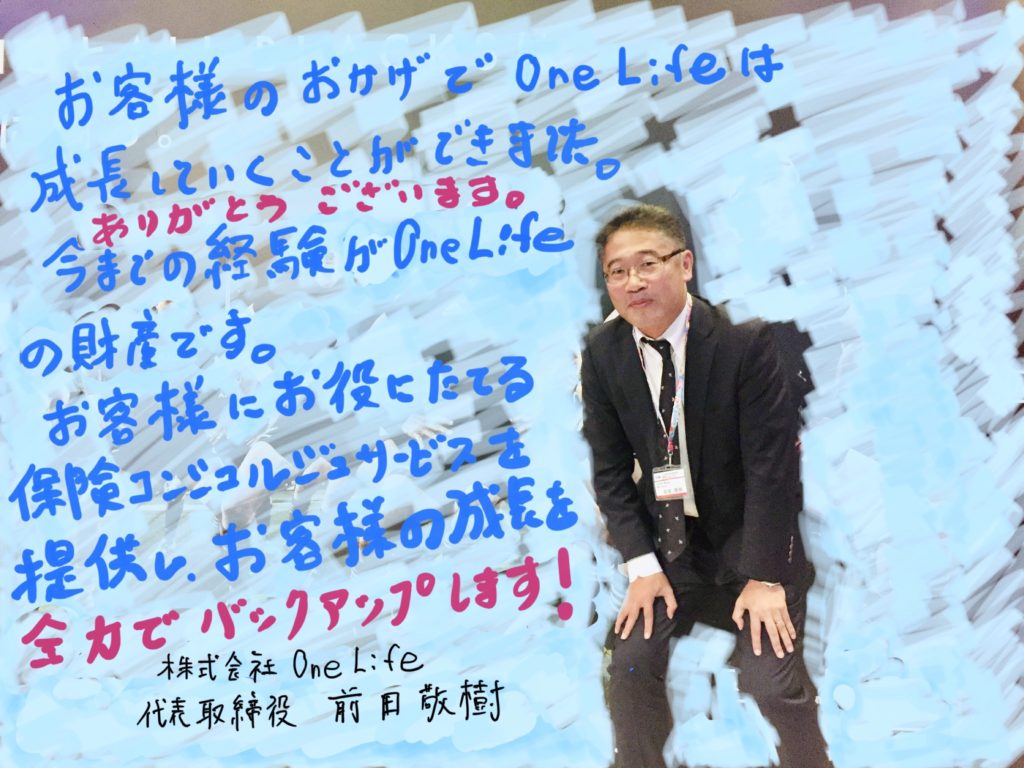 お客様のおかげで One Lifeは
成長していくことができました。
ありがとう ございます。
今までの経験がOne Life
の財産です。
お客様にお役にたてる
保険コンシェルジュサービスを
提供し、お客様の成長を
全力でバックアップします!
株式会社 One Life
代表取締役 前田敬樹